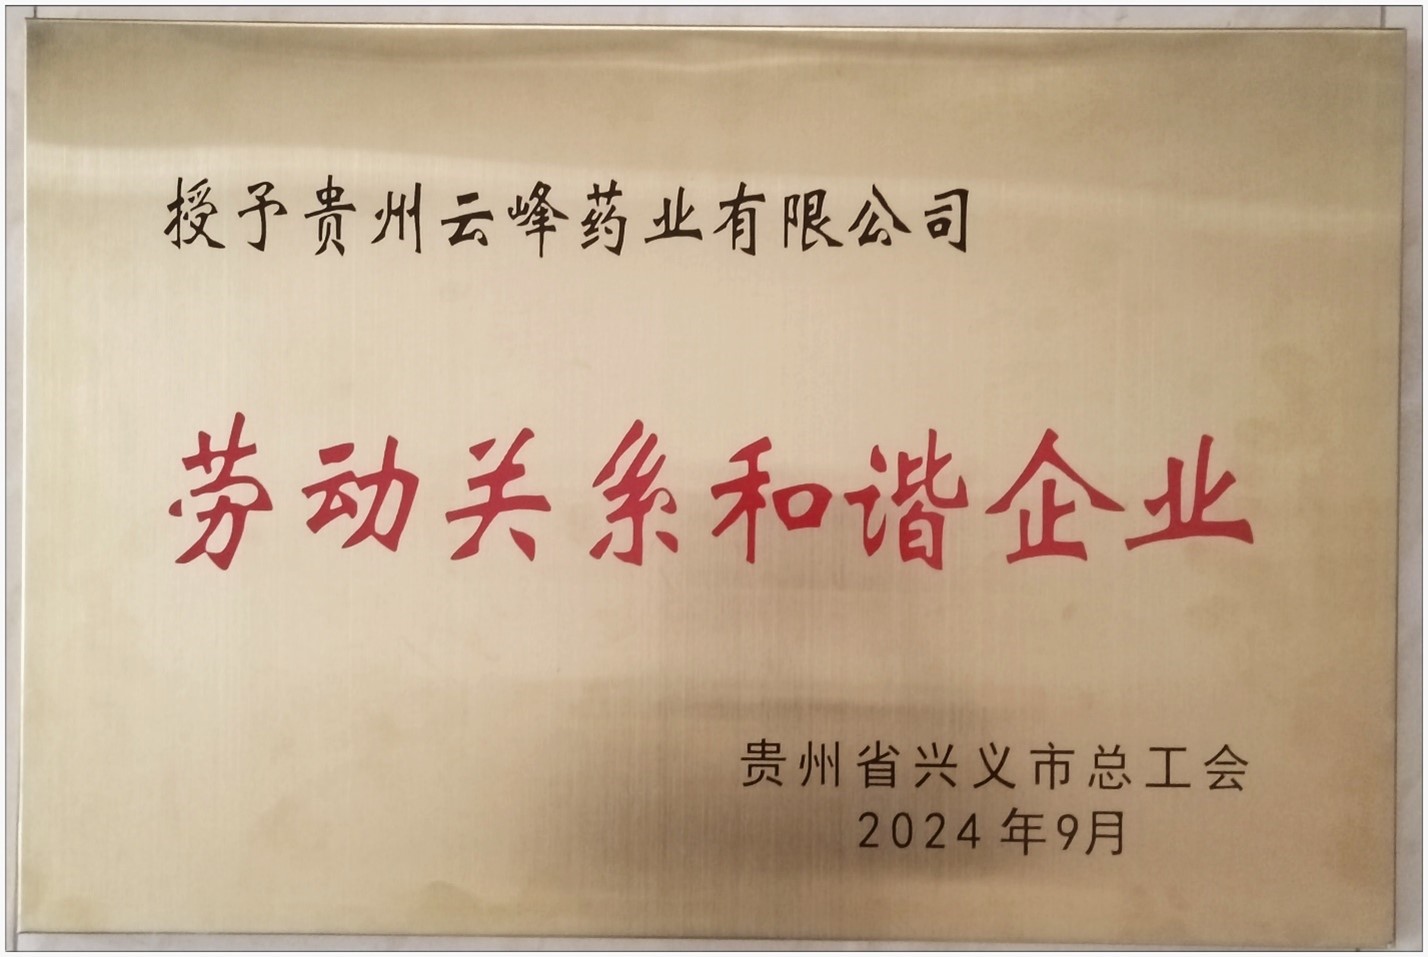 授予贵州云峰药业有限公司
劳动关系和谐企业
贵州省兴义市总工会
2024年9月